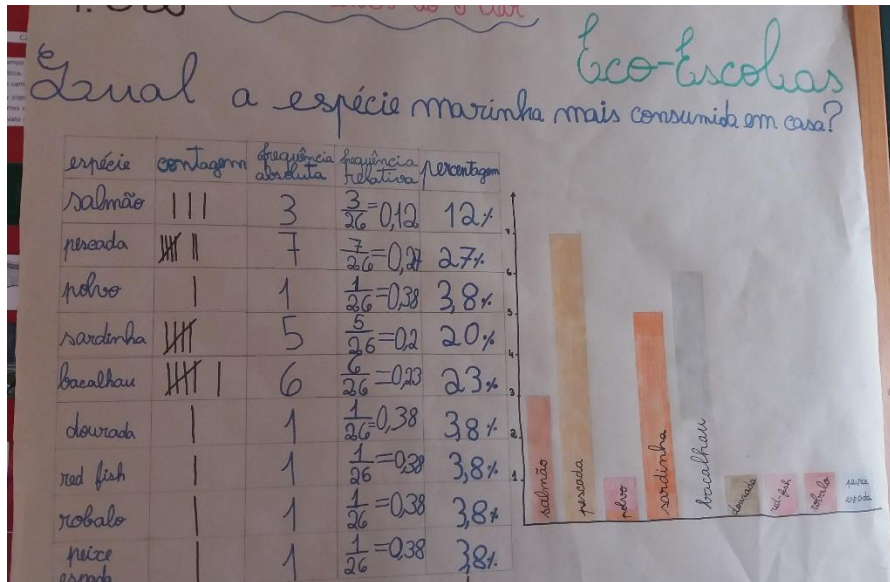 Eco-Escolas
Qual a espécie marinha mais consumida em casa?
espécie contagem frequência absoluta frequência relativa percentagem
salmão 3 3/26=0,12 12%
pescada 7 7/26=0,27 27%
polvo 1 1/26=0,38 3,8%
sardinha 5 5/26=0,2 20%
bacalhau 6 6/26=0,23 23%
dourada 1 1/26=0,38 3,8%
red fish 1 1/26=0,38 3,8%
robalo 1 1/26=0,38 3,8%
peixe espada 1 1/26=0,38 3,8%
7
6
5
4
3
2
1
salmão pescada polvo sardinha bacalhau dourada red fish robalo peixe espada